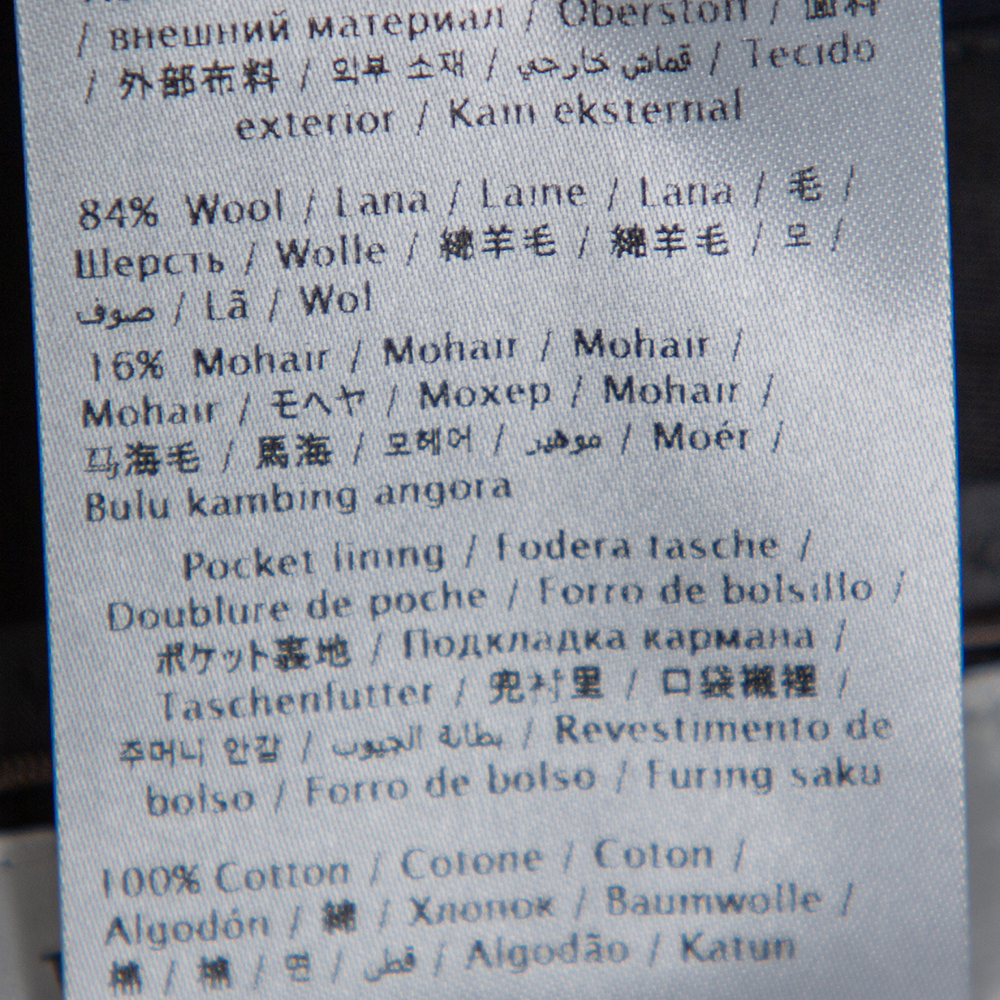 / внешний материал / Oberstoff / 面料
/ 外部布料 / 외부 소재 / قماش خارجي / Tecido
exterior / Kain eksternal
84% Wool / Lana / Laine / Lana / 毛 /
Шерсть / Wolle / 綿羊毛 / 綿羊毛 / 모 /
صوف / Lã / Wol
16% Mohair / Mohair / Mohair /
Mohair / モヘヤ / Мохер / Mohair /
马海毛 / 馬海 / 모헤어 / موهير / Moér /
Bulu kambing angora
Pocket lining / Fodera tasche /
Doublure de poche / Forro de bolsillo /
ポケット裏地 / Подкладка кармана /
Taschenfutter / 兜衬里 / 口袋襯裡 /
주머니 안감 / بطانة الجيوب / Revestimento de
bolso / Forro de bolso / Furing saku
100% Cotton / Cotone / Coton /
Algodón / 綿 / Хлопок / Baumwolle /
棉 / 棉 / 면 / قطن / Algodão / Katun